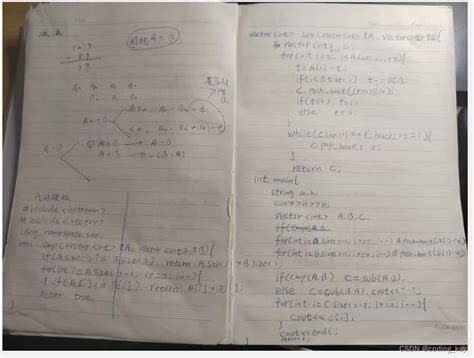 减法
例题 A ≥ B
1 2 3
- 8 9
A₃ A₂ A₁ A₀
B₂ B₁ B₀
≥0, A₀-B₀-t
<0, A₀-B₀+10-t
A-B
① A≥B → A-B
A<B → -(B-A)
#include <iostream>
#include <vector>
using namespace std;
bool cmp(vector<int> &A, vector<int> &B){
if(A.size() != B.size()) return A.size() > B.size();
for(int i=A.size()-1; i>=0; i--){
if(A[i] != B[i]) return A[i] > B[i];
}
return true;
}
vector<int> sub(vector<int> &A, vector<int> &B){
vector<int> C;
for(int i=0; i<A.size(); i++){
t=A[i]-t;
if(i<B.size()) t-=B[i];
C.push_back((t+10)%10);
if(t<0) t=1;
else t=0;
}
while(C.size()>1 && C.back()==0){
C.pop_back();
}
return C;
}
int main(){
string a,b;
cin>>a>>b;
vector<int> A,B,C;
for(int i=a.size()-1; i>=0; i--) A.push_back(a[i]-'0');
for(int i=b.size()-1; i>=0; i--) B.push_back(b[i]-'0');
if(cmp(A,B)) C=sub(A,B);
else C=sub(B,A), cout<<'-';
for(int i=C.size()-1; i>=0; i--){
cout<<C[i];
}
cout<<endl;
CSDN @coding_ksy